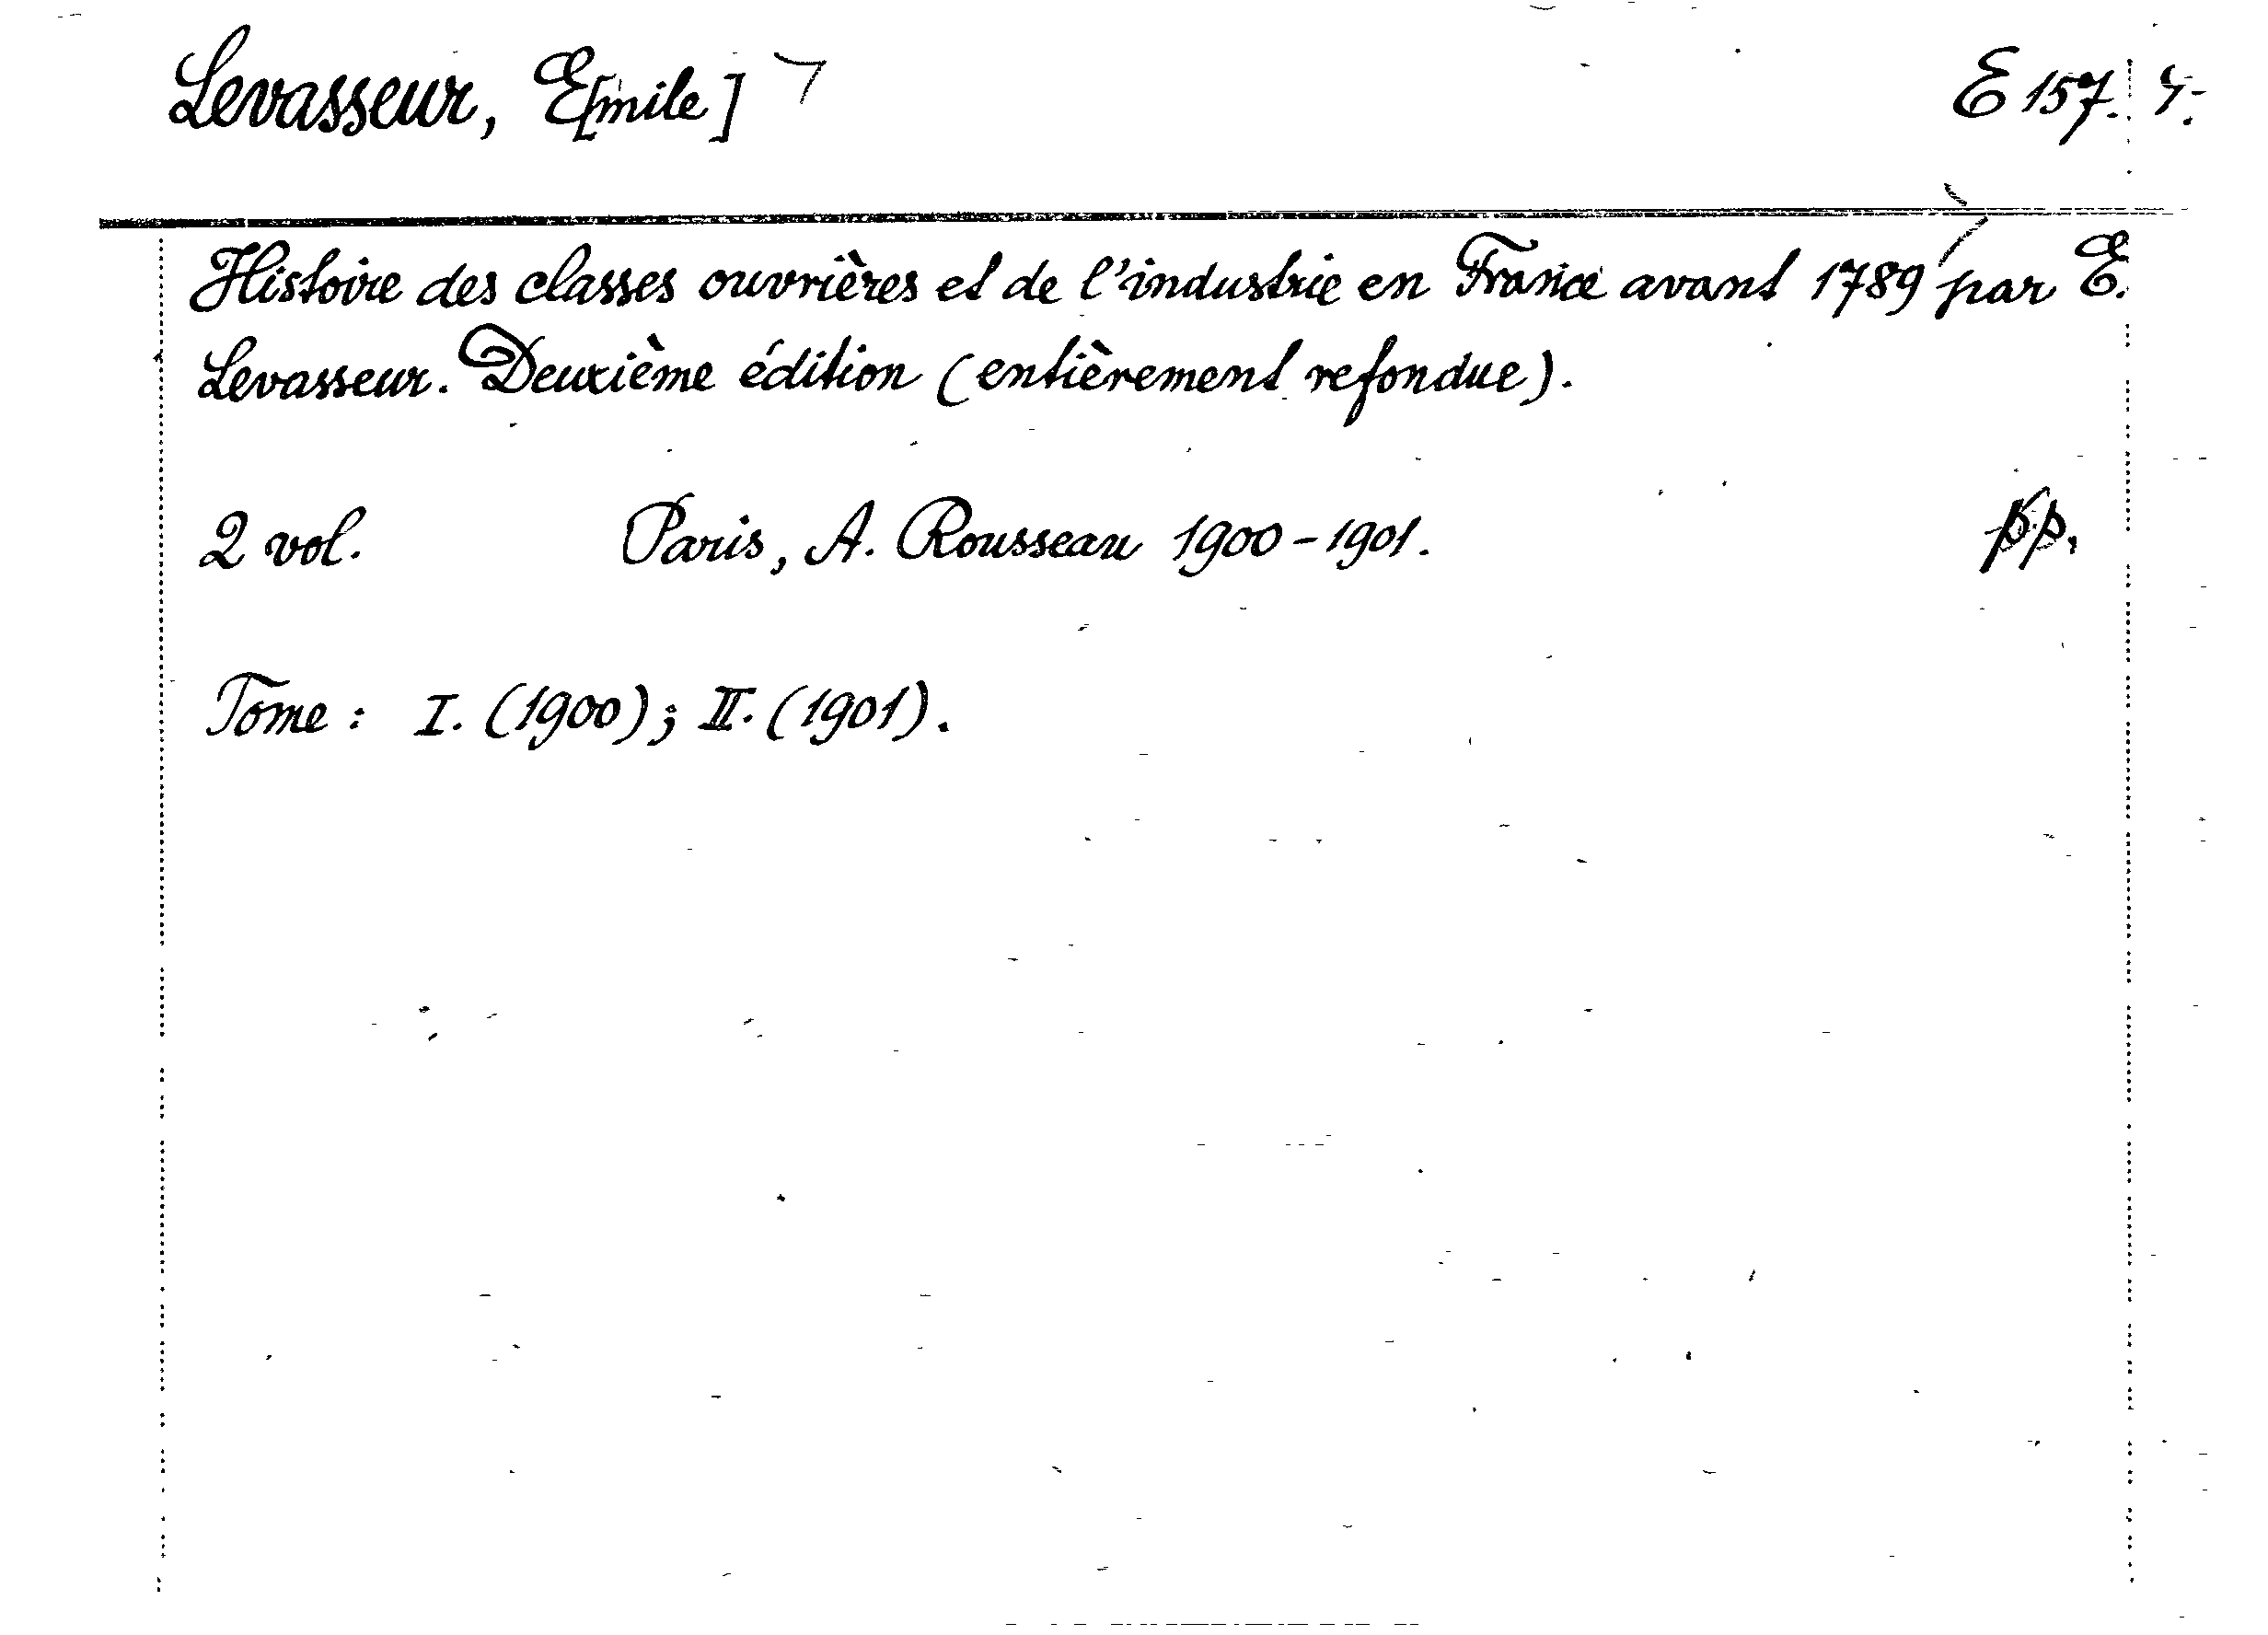 Levasseur, E[mile] E 157.
Histoire des classes ouvrières et de l'industrie en France avant 1789 par E.
Levasseur. Deuxième édition (entièrement refondue).
2 vol. Paris, A. Rousseau 1900-1901. pp.
Tome: I. (1900); II. (1901).